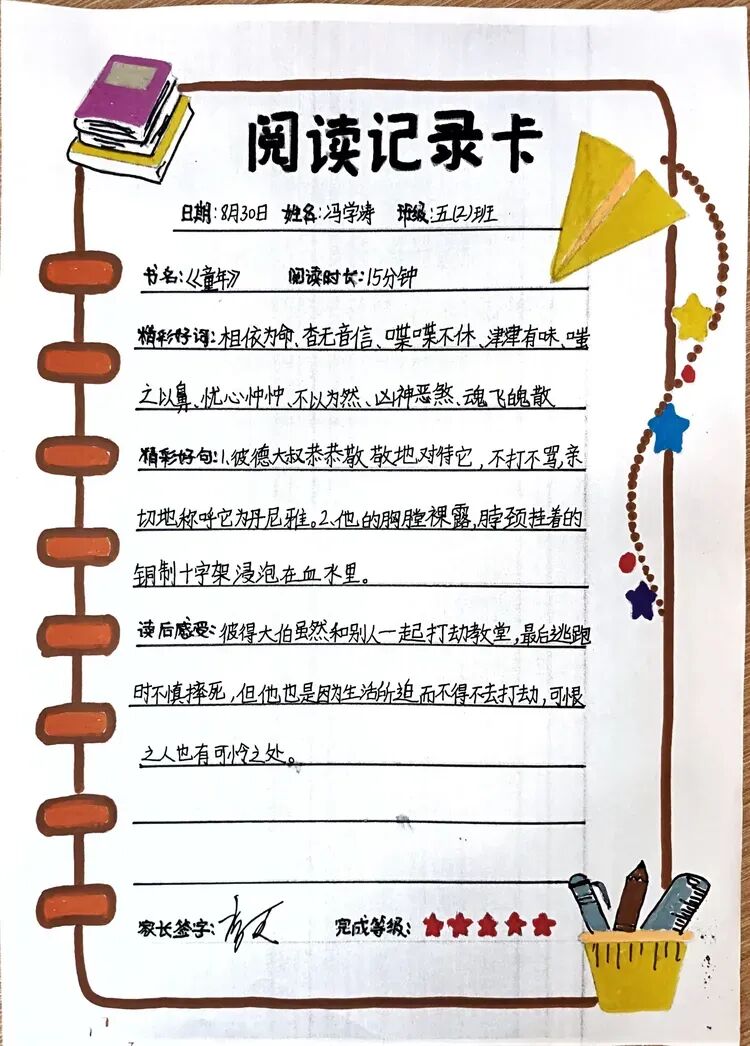 阅读记录卡
日期:8月30日 姓名:冯学涛 班级:五(2)班
书名:《童年》 阅读时长:15分钟
精彩好词:相依为命、杳无音信、喋喋不休、津津有味、嗤
之以鼻、忧心忡忡、不以为然、凶神恶煞、魂飞魄散
精彩好句:1.彼德大叔恭恭敬敬地对待它,不打不骂,亲
切地称呼它为丹尼雅。2.他的胸膛裸露,脖颈挂着的
铜制十字架浸泡在血水里。
读后感受:彼得大伯虽然和别人一起打劫教堂,最后逃跑
时不慎摔死,但他也是因为生活所迫而不得不去打劫,可恨
之人也有可怜之处。
家长签字: 完成等级: